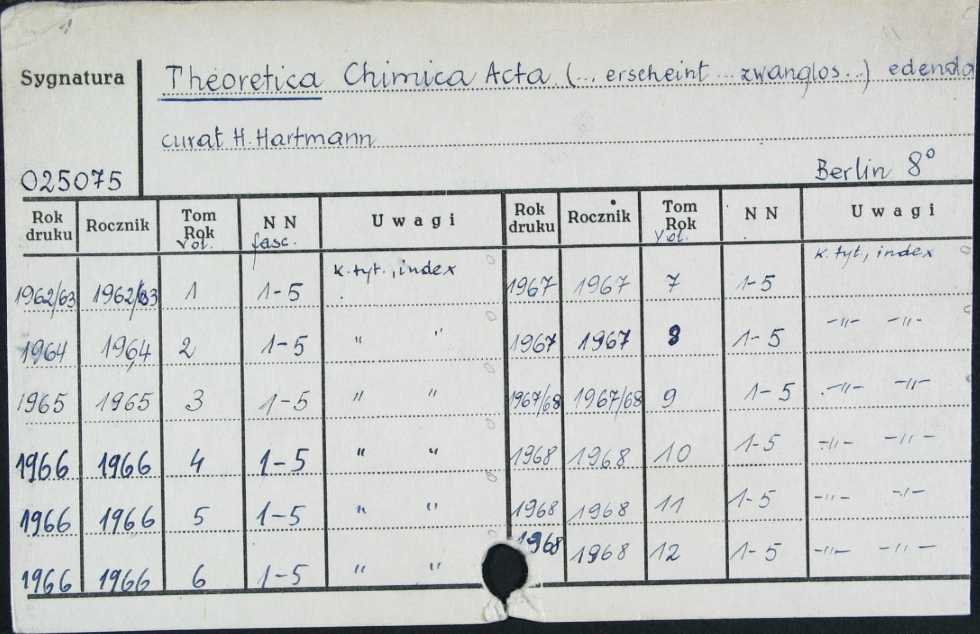 Sygnatura Theoretica Chimica Acta (... erscheint ... zwanglos ...) edenda
curat H. Hartmann
025075 Berlin 8°
Rok druku Rocznik Tom Rok vol. N N fasc. Uwagi Rok druku Rocznik Tom Rok vol. N N Uwagi
1962/63 1962/63 1 1-5 k. tyt., index 1967 1967 7 1-5 k. tyt., index
1964 1964 2 1-5 " " 1967 1967 8 1-5 -"- -"-
1965 1965 3 1-5 " " 1967/68 1967/68 9 1-5 -"- -"-
1966 1966 4 1-5 " " 1968 1968 10 1-5 -"- -"-
1966 1966 5 1-5 " " 1968 1968 11 1-5 -"- -"-
1966 1966 6 1-5 " " 1968 1968 12 1-5 -"- -"-